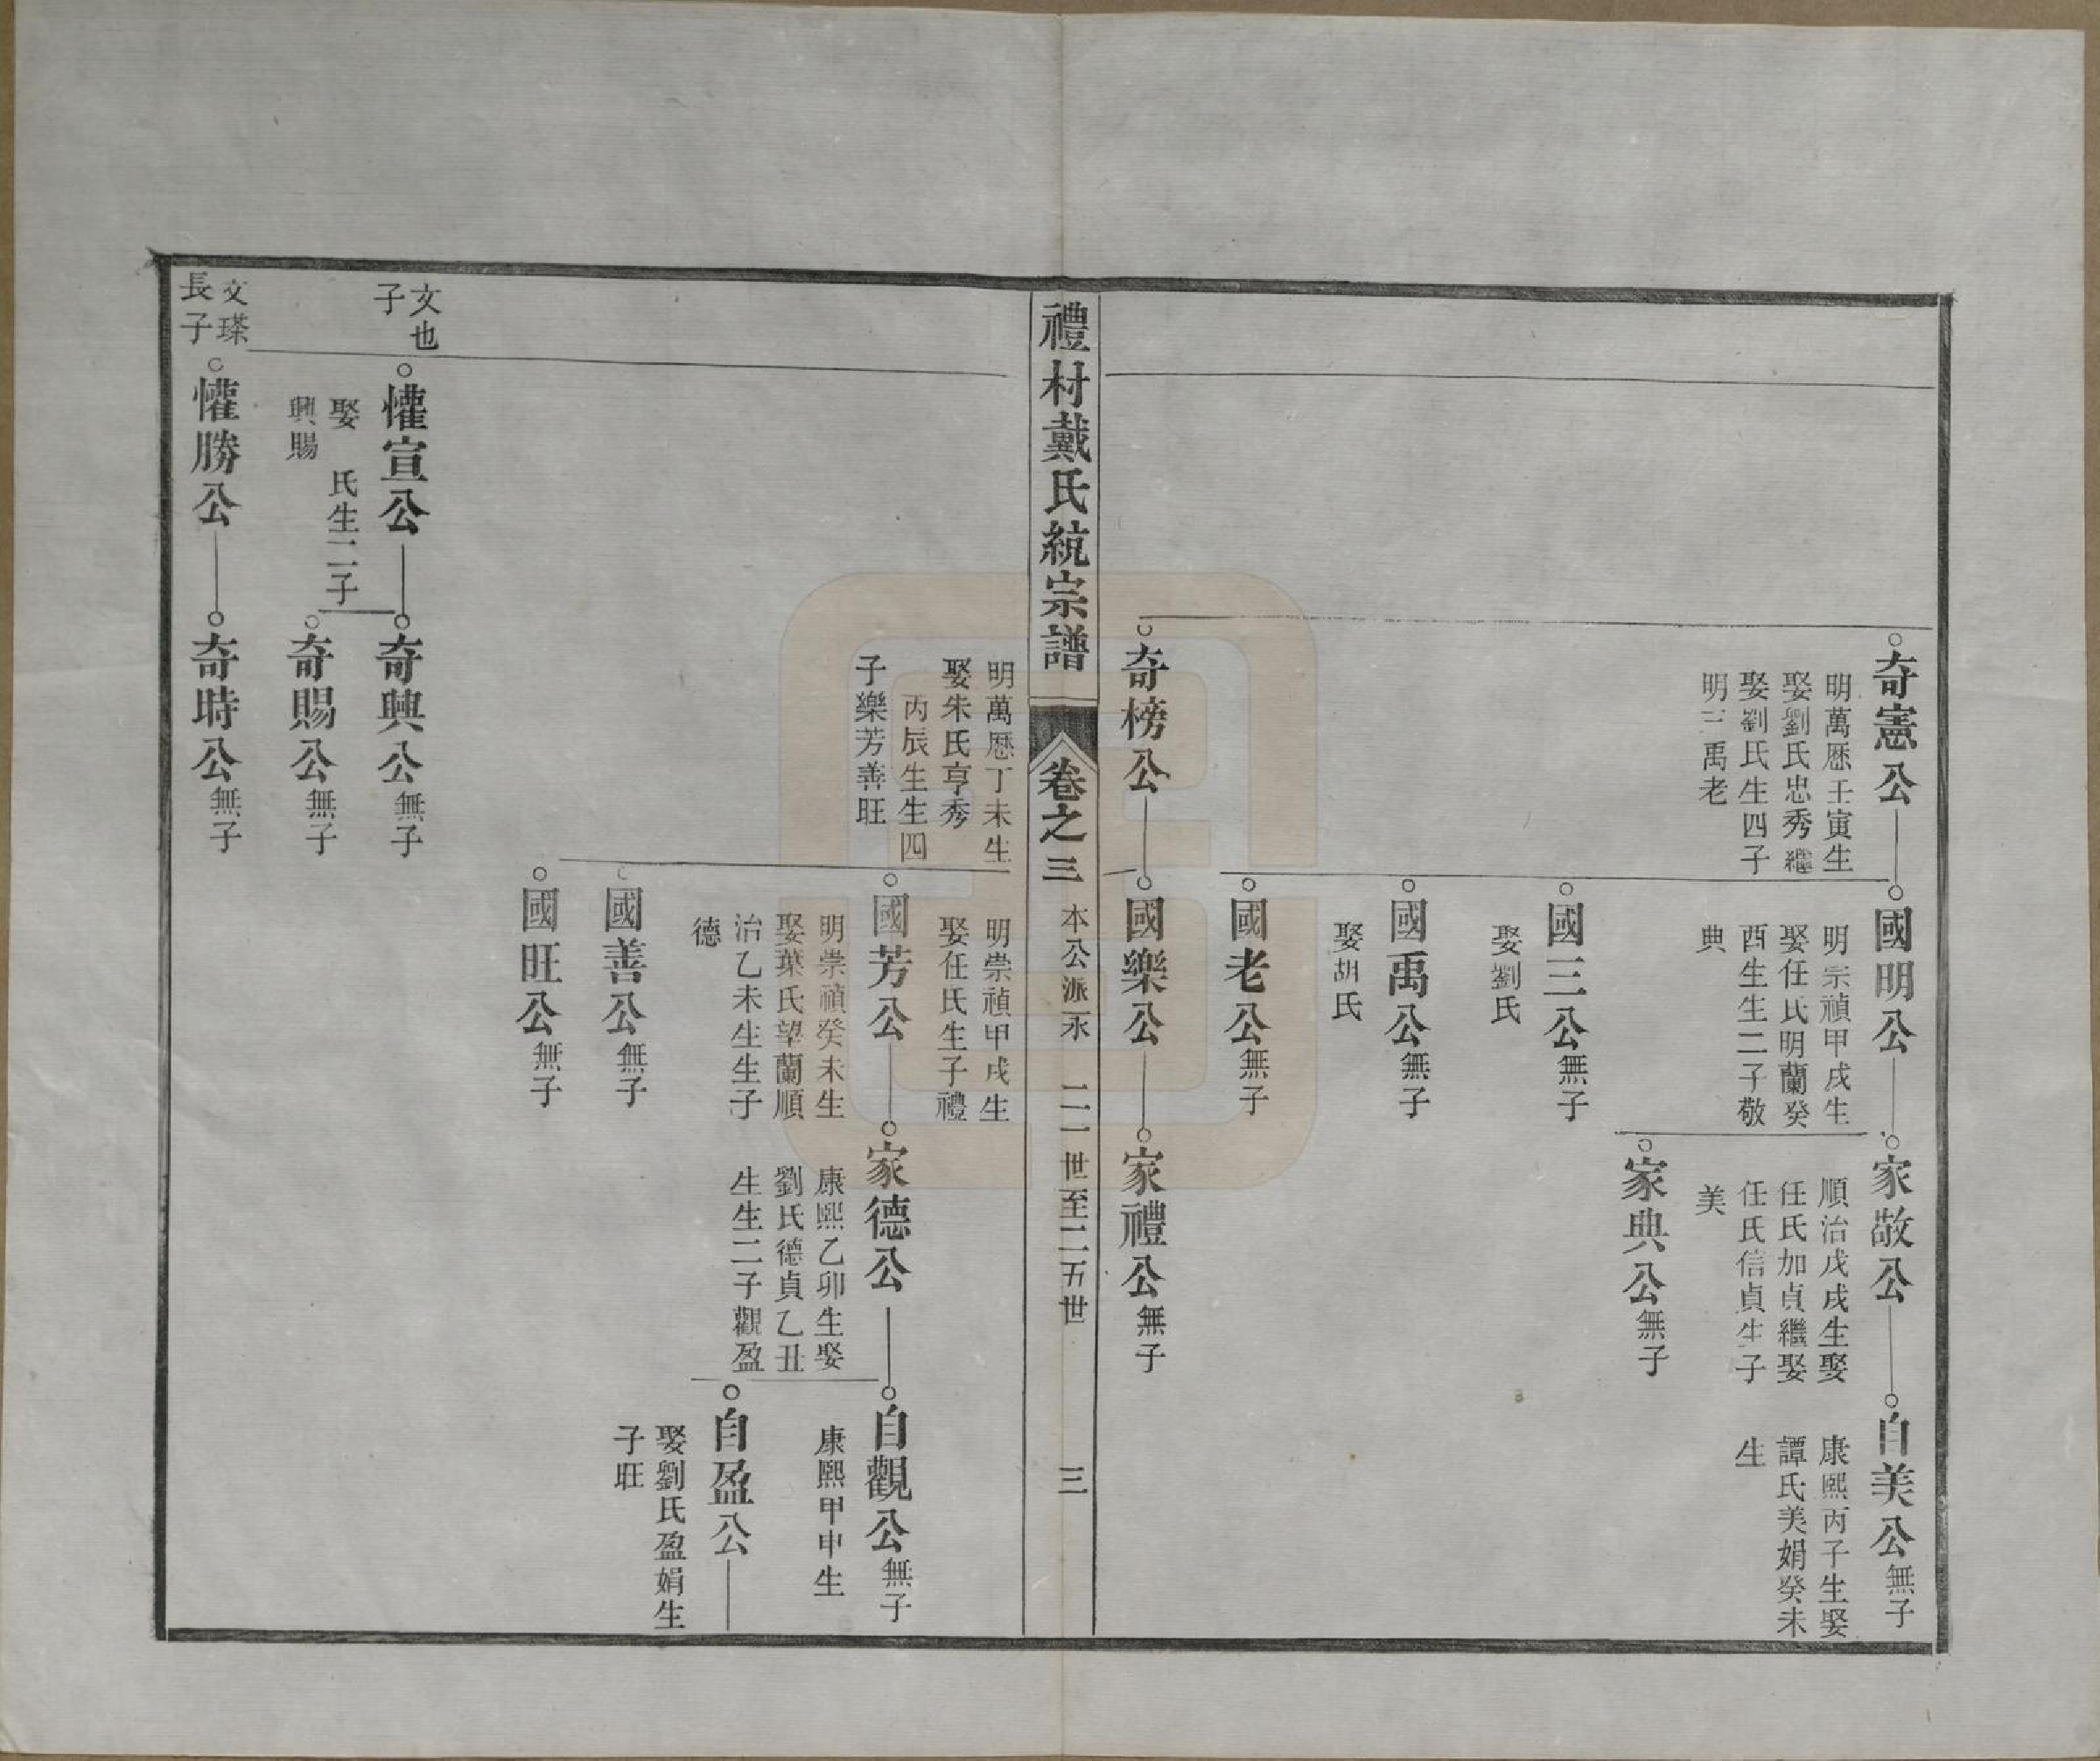 奇憲公
明萬厯壬寅生
娶劉氏忠秀繼
娶劉氏生四子
明三禹老
國明公
明崇禎甲戌生
娶任氏明蘭癸
酉生生二子敬
典
家敬公
順治戊戌生娶
任氏加貞繼娶
任氏信貞生子
美
自美公無子
康熙丙子生娶
譚氏美娟癸未
生
家典公無子
國三公無子
娶劉氏
國禹公無子
娶胡氏
國老公無子
奇榜公
國樂公
家禮公無子
禮村戴氏統宗譜
卷之三
本公派永
二一世至二五世
三
明萬厯丁未生
娶朱氏亨秀
丙辰生生四
子樂芳善旺
明崇禎甲戌生
娶任氏生子禮
國芳公
明崇禎癸未生
娶葉氏望蘭順
治乙未生生子
德
家德公
康熙乙卯生娶
劉氏德貞乙丑
生生二子觀盈
自觀公無子
康熙甲申生
自盈公
娶劉氏盈娟生
子旺
國善公無子
國旺公無子
文也
子
懽宣公
娶 氏生二子
興賜
奇興公無子
奇賜公無子
文瑹
長子
懽勝公
奇時公無子